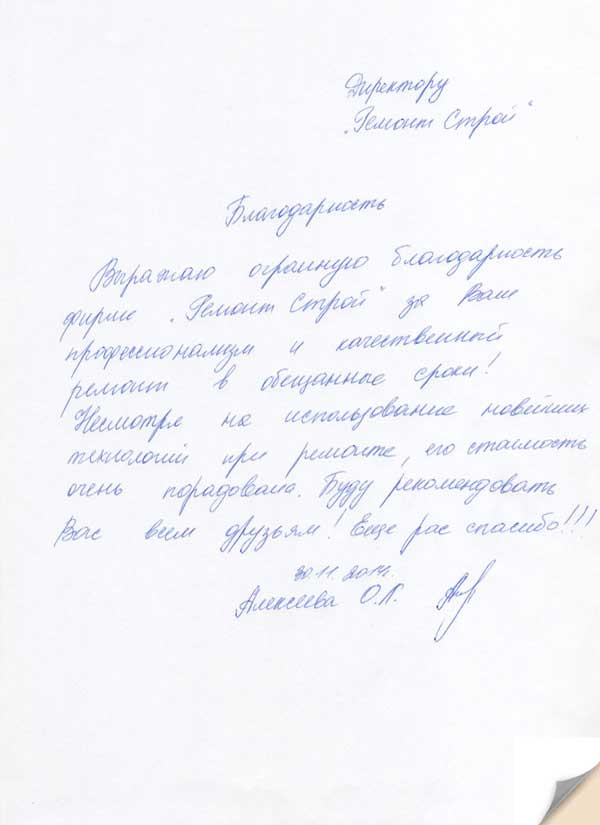 Директору
„Ремонт Строй“
Благодарность
Выражаю огромную благодарность
фирме „Ремонт Строй“ за Ваш
профессионализм и качественный
ремонт в обещанные сроки!
Несмотря на использование новейших
технологий при ремонте, его стоимость
очень порадовала. Буду рекомендовать
Вас всем друзьям! Еще рас спасибо!!!
30.11.2014г.
Алексеева О.К.